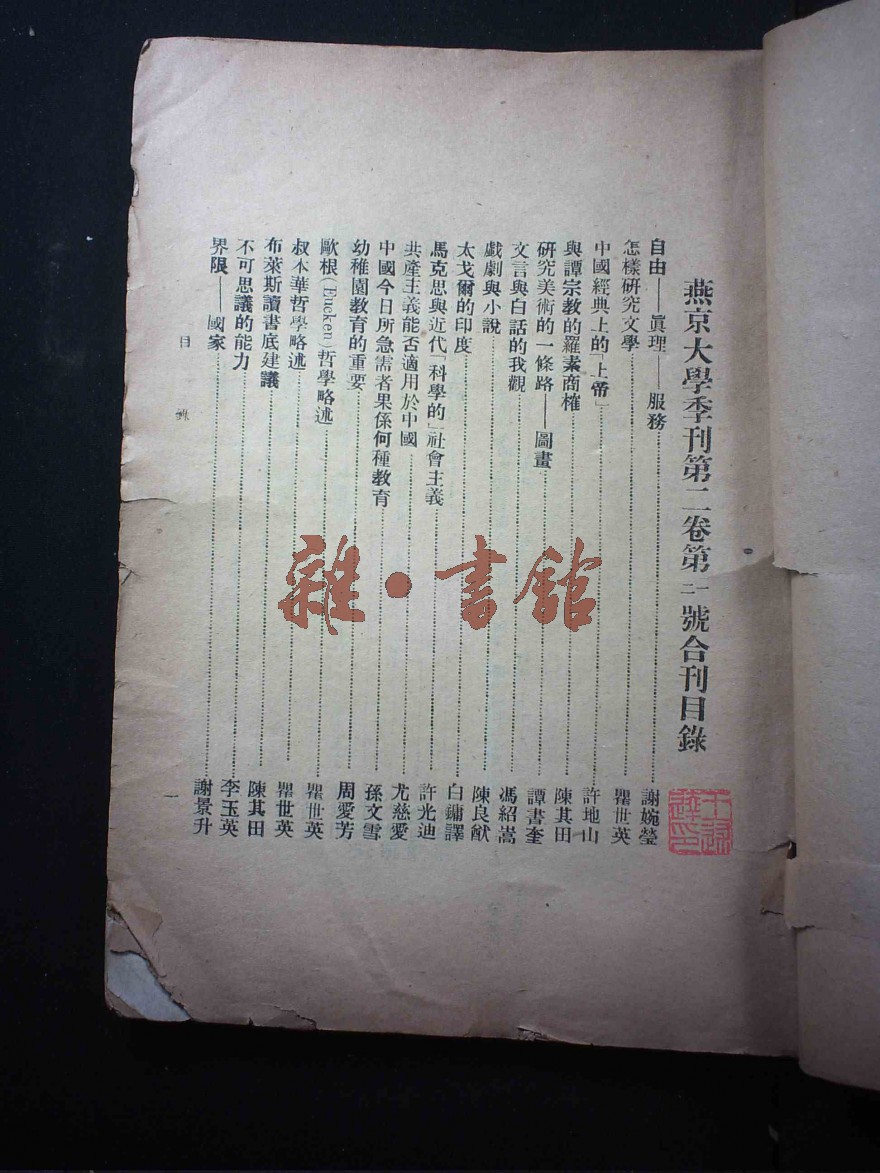 燕京大學季刊第二卷第一二號合刊目錄
自由——眞理——服務 謝婉瑩
怎樣硏究文學 瞿世英
中國經典上的「上帝」 許地山
與譚宗教的羅素商榷 陳其田
硏究美術的一條路——圖畫 譚書奎
文言與白話的我觀 馮紹嵩
戲劇與小說 陳良猷
太戈爾的印度 白鏞譯
馬克思與近代「科學的」社會主義 許光迪
共產主義能否適用於中國 尤慈愛
中國今日所急需者果係何種教育 孫文雪
幼稚園教育的重要 周愛芳
歐根(Eucken)哲學略述 瞿世英
叔本華哲學略述 瞿世英
布萊斯讀書底建議 陳其田
不可思議的能力 李玉英
界限——國家 謝景升
目錄
一
雜·書館